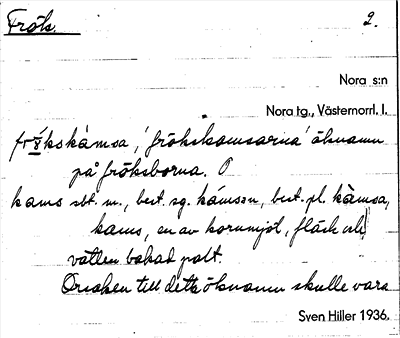 Fröks 2.
Nora s:n
Nora tg., Västernorrl. l.
frökskámsa, 'frökskamsarna' öknamn
på fröksborna. O
kams sbt. m., best. sg. kámsən, best. pl. kàmsa,
kams, en av kornmjöl, fläsk och
vatten bakad palt.
Orsaken till detta öknamn skulle vara
Sven Hiller 1936.